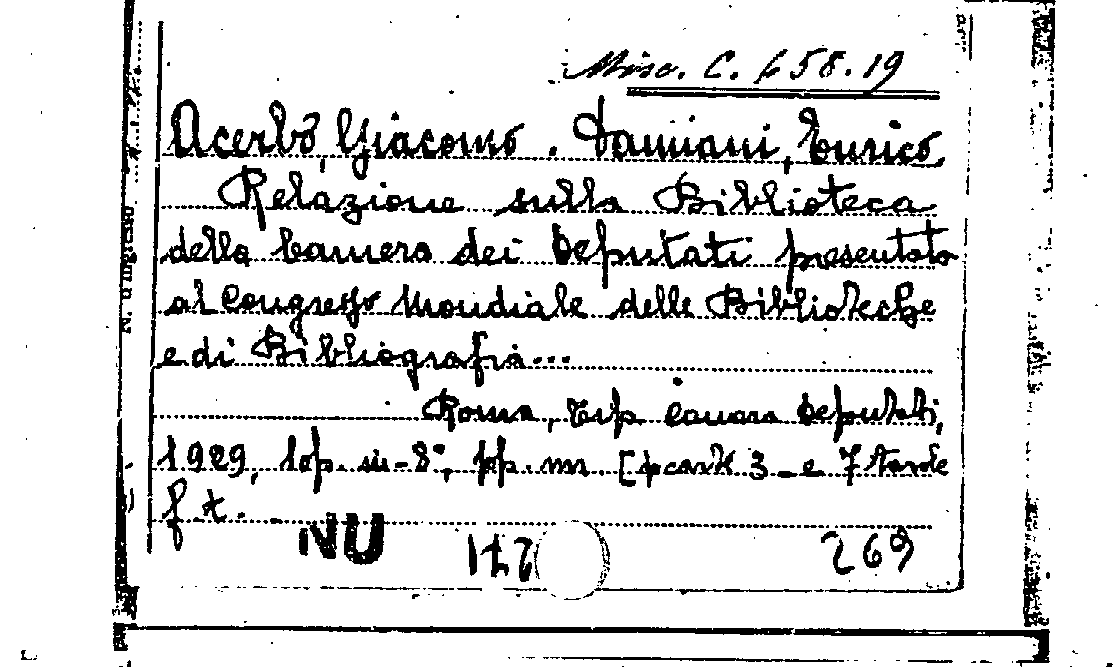 Misc. C. 658.19
Acerbo, Giacomo. Damiani, Enrico
Relazione sulla Biblioteca
della Camera dei Deputati presentata
al Congresso Mondiale delle Biblioteche
e di Bibliografia...
Roma, Tip. Camera Deputati,
1929, 1 op. in-8°, pp. nn. [carte 3 - e 7 tavole
f. t.
NU
269
N. d'ingresso